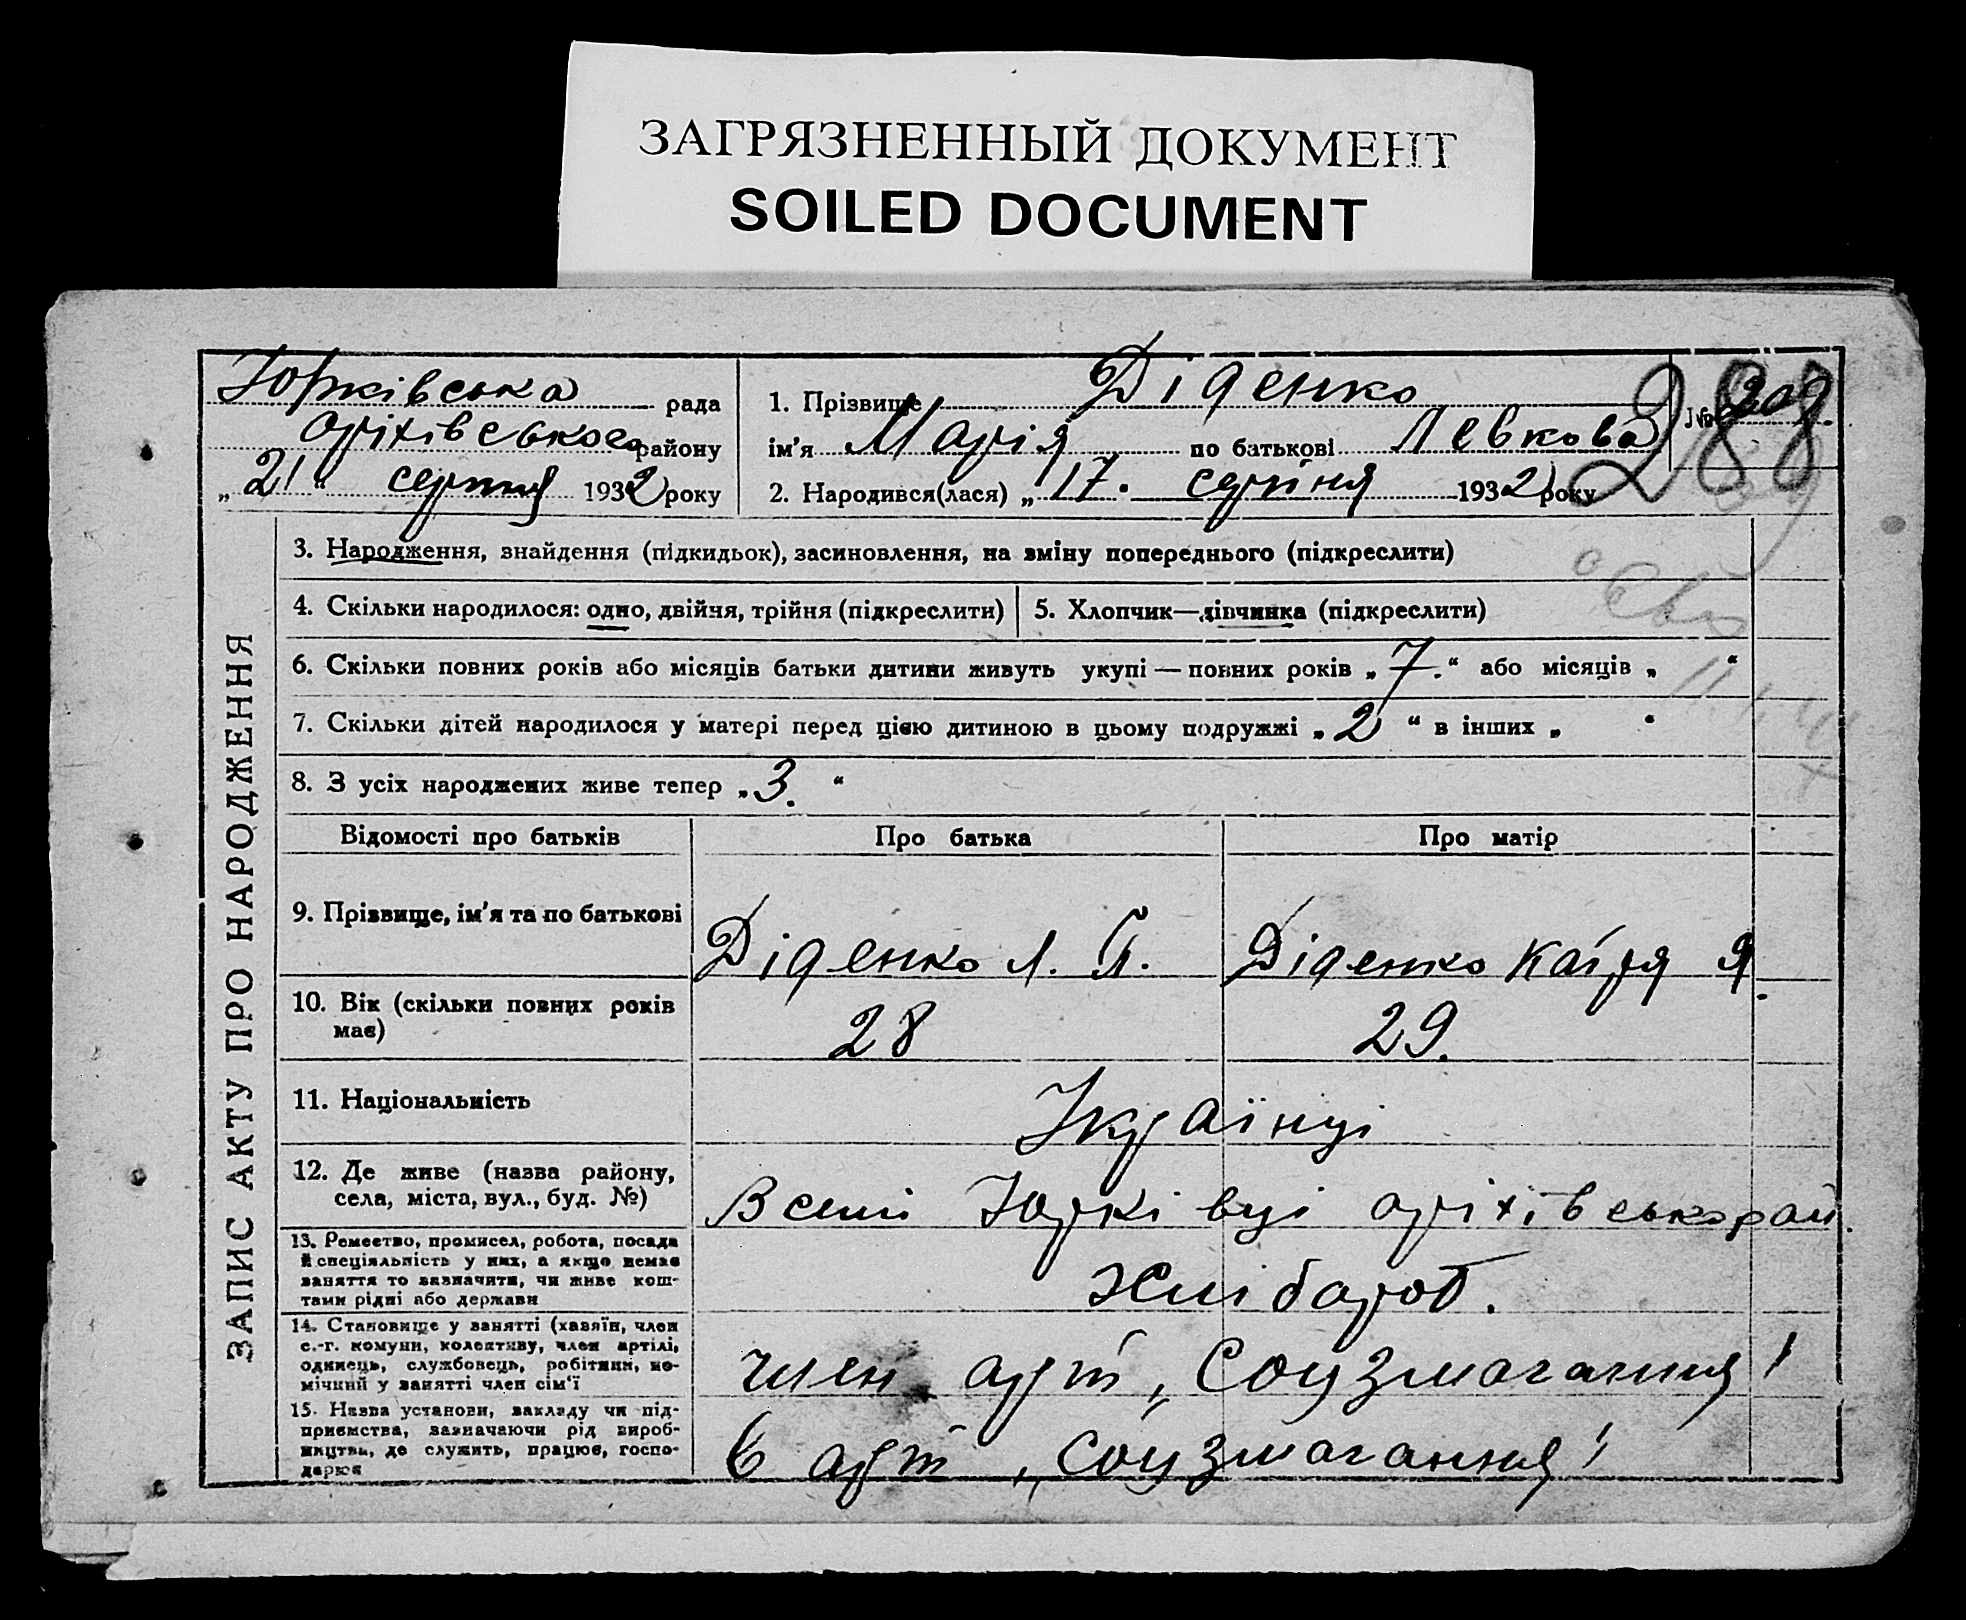 ЗАГРЯЗНЕННЫЙ ДОКУМЕНТ
SOILED DOCUMENT
Юрківська рада
Оріхівського району
„ 21 “ серпня 1932 року
1. Прізвище Діденко
ім'я Марія по батькові Левкова
2. Народився(лася) „ 17. серпня 1932 року
№ 209
288
ЗАПИС АКТУ ПРО НАРОДЖЕННЯ
3. Народження, знайдення (підкидьок), засиновлення, на зміну попереднього (підкреслити)
4. Скільки народилося: одно, двійня, трійня (підкреслити)
5. Хлопчик—дівчинка (підкреслити)
6. Скільки повних років або місяців батьки дитини живуть укупі — повних років „ 7. “ або місяців „ “
7. Скільки дітей народилося у матері перед цією дитиною в цьому подружжі „ 2 “ в інших „ “
8. З усіх народжених живе тепер „ 3. “
Відомості про батьків Про батька Про матір
9. Прізвище, ім'я та по батькові
Діденко Л. П. Діденко Катря Я.
10. Вік (скільки повних років
має)
28 29.
11. Національність
Українці
12. Де живе (назва району,
села, міста, вул., буд. №)
В селі Юрківці оріхівськ рай.
13. Ремество, промисел, робота, посада
й спеціяльність у них, а якщо немає
заняття то зазначити, чи живе кош-
тами рідні або держави
Хлібороб.
14. Становище у занятті (хазяїн, член
с.-г. комуни, колективу, член артілі,
одинець, службовець, робітник, по-
мічний у занятті член сім'ї
член арт „Соцзмагання"
15. Назва установи, закладу чи під-
приємства, зазначаючи рід вироб-
ництва, де служить, працює, госпо-
дарює
в арт „Соцзмагання"